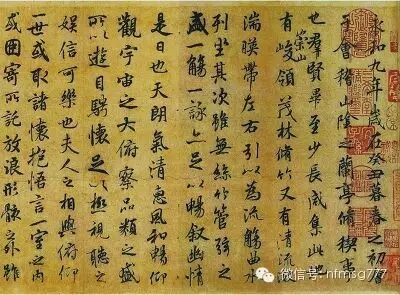 永和九年歲在癸丑暮春之初會
于會稽山陰之蘭亭脩稧事
也群賢畢至少長咸集此地
有崇山峻領茂林脩竹又有清流激
湍暎帶左右引以為流觴曲水
列坐其次雖無絲竹管弦之
盛一觴一詠亦足以暢叙幽情
是日也天朗氣清惠風和暢仰
觀宇宙之大俯察品類之盛
所以遊目騁懷足以極視聽之
娛信可樂也夫人之相與俯仰
一世或取諸懷抱悟言一室之內
或因寄所託放浪形骸之外雖
微信号: nfmsg777